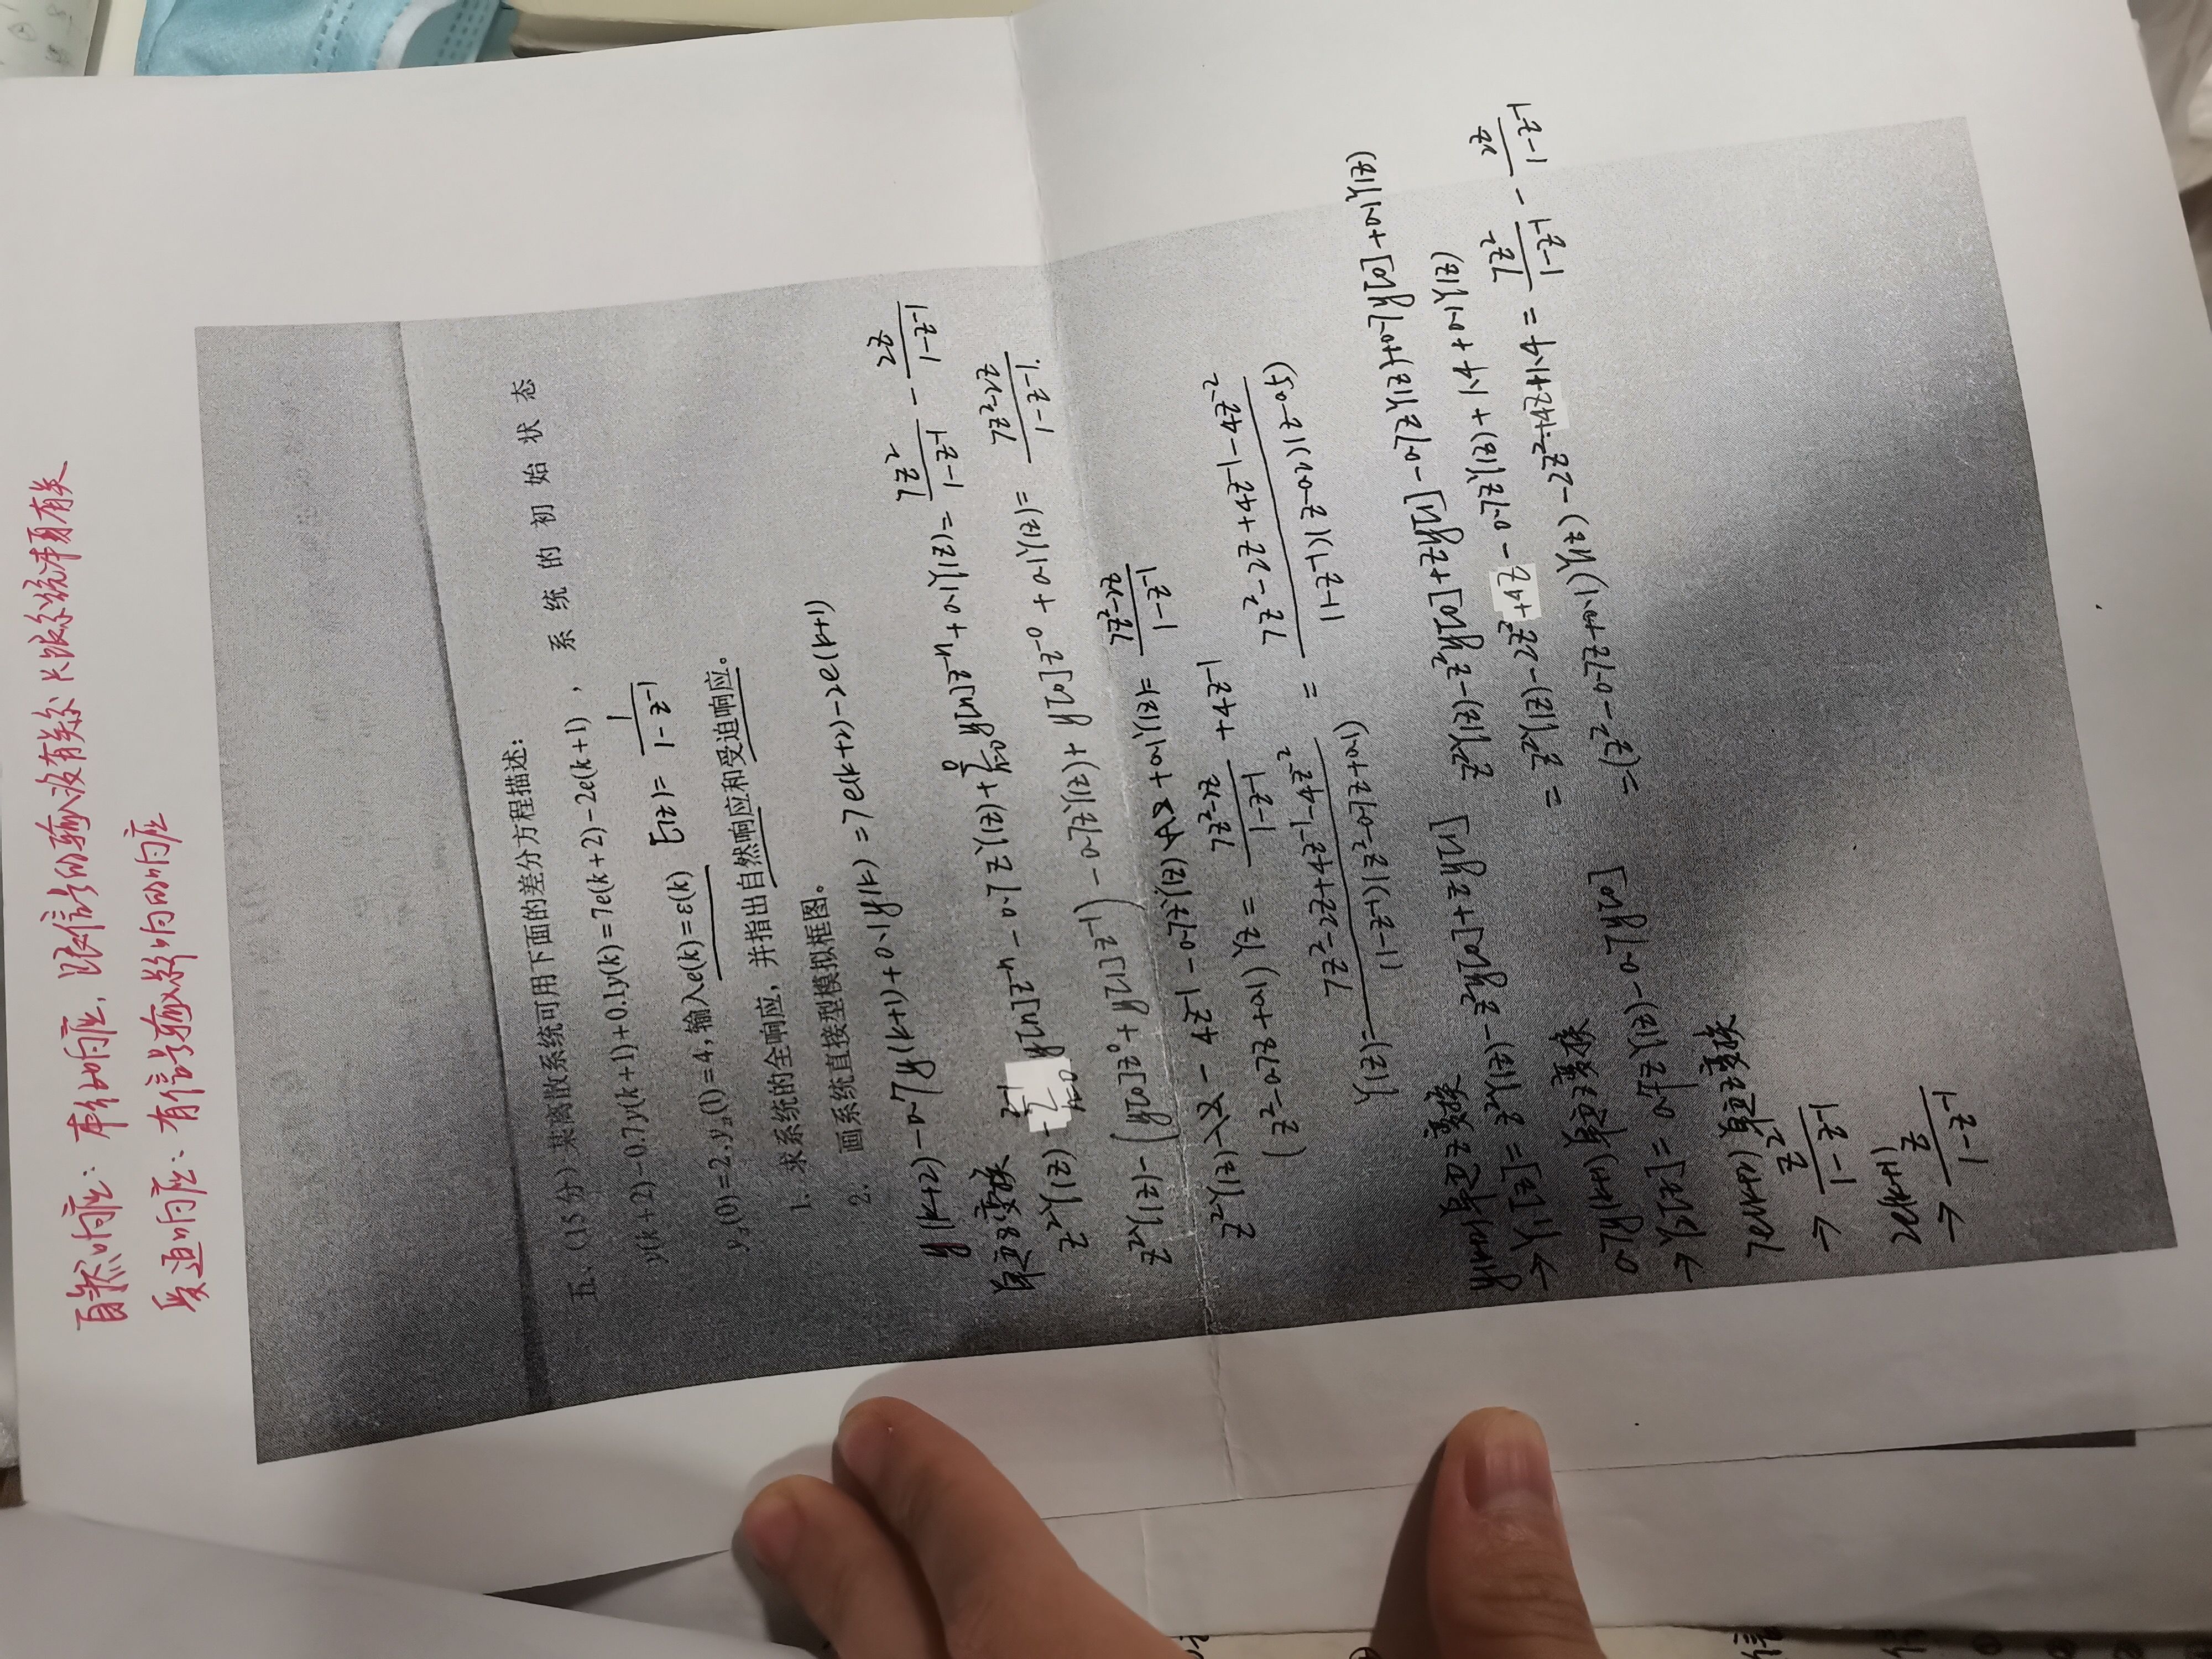 自然响应：本征响应，跟信号的输入没有关系 只跟系统本身有关
受迫响应：有信号输入影响的响应
五、（15分）某离散系统可用下面的差分方程描述：
y(k+2)−0.7y(k+1)+0.1y(k)=7e(k+2)−2e(k+1)， 系统的初始状态
y_zi(0)=2, y_zi(1)=4, 输入e(k)=ε(k) E(z)= 1/(1-z⁻¹)
1. 求系统的全响应，并指出自然响应和受迫响应。
2. 画系统直接型模拟框图。
y(k+2)-0.7y(k+1)+0.1y(k)=7e(k+2)-2e(k+1)
单边z变换
z²Y(z) - Σ_{n=0} y[n]z⁻ⁿ - 0.7zY(z) + Σ_{n=0}^{0} y[n]z⁻ⁿ + 0.1Y(z) = 7z²/(1-z⁻¹) - 2z/(1-z⁻¹)
z²Y(z) - (y[0]z⁰+y[1]z⁻¹) - 0.7zY(z) + y[0]z⁻⁰ + 0.1Y(z) = (7z²-2z)/(1-z⁻¹)
z²Y(z) - 2 - 4z⁻¹ - 0.7zY(z) + 2 + 0.1Y(z) = (7z²-2z)/(1-z⁻¹)
(z²-0.7z+0.1)Yz = (7z²-2z)/(1-z⁻¹) + 4z⁻¹
Y(z) = (7z²-2z+4z⁻¹-4z⁻²)/((1-z⁻¹)(z²-0.7z+0.1)) = (7z²-2z+4z⁻¹-4z⁻²)/((1-z⁻¹)(z-0.2)(z-0.5))
y(k+2)单边z变换
→Y₁[z]= z²Y(z)-z²y[0]+zy[1]
0.7y(k+1)单边z变换
→Y₂[z]= 0.7zY(z)-0.7y[0]
7e(k+2)单边z变换
→ z²/(1-z⁻¹)
2e(k+1)
→ z/(1-z⁻¹)
z²Y(z)-z²y[0]+zy[1]-0.7zY(z)+0.7y[0]+0.1Y(z)
= z²Y(z)-2z²+4z-0.7zY(z)+1.4+0.1Y(z)
=(z²-0.7z+0.1)Y(z)-2z²+4z+1.4 = 7z²/(1-z⁻¹) - 2z/(1-z⁻¹)